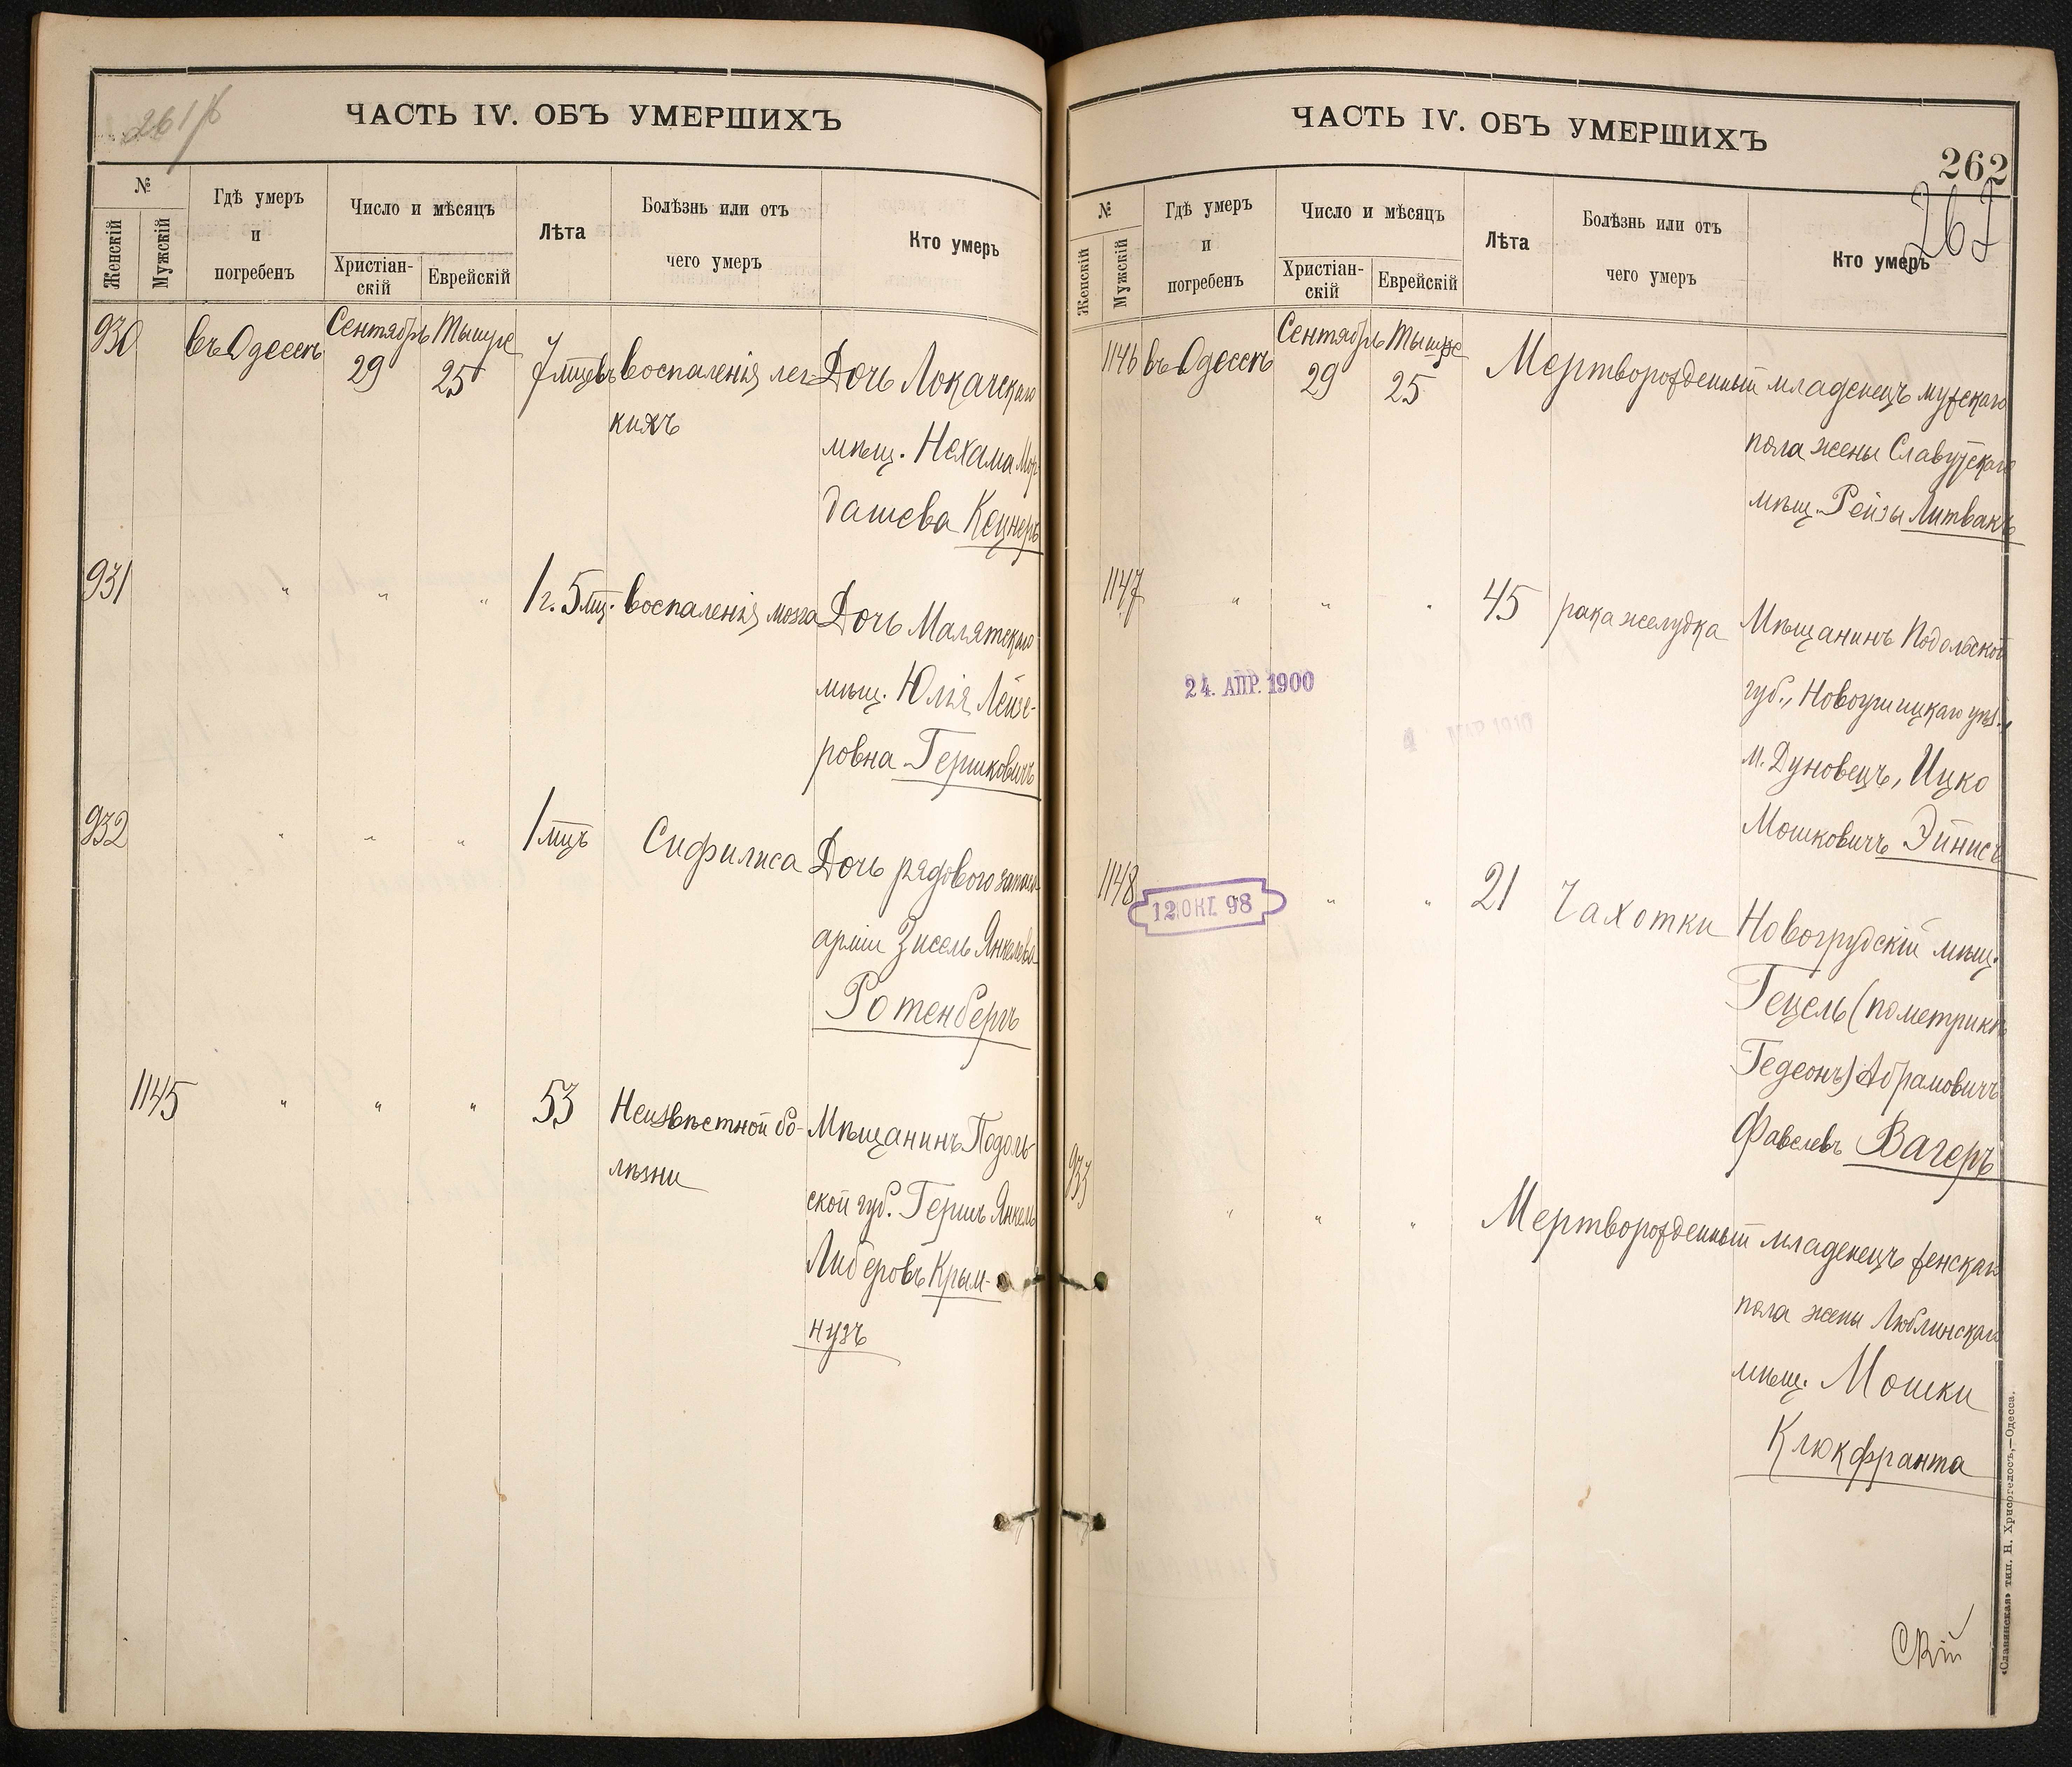 261/б
ЧАСТЬ IV. ОБЪ УМЕРШИХЪ
№
Женскій
Мужскій
Гдѣ умеръ
и
погребенъ
Число и мѣсяцъ
Христіан-
скій
Еврейскій
Лѣта
Болѣзнь или отъ
чего умеръ
Кто умеръ
930 въ Одессѣ Сентябрь 29 Тышре 25 7 мцевъ воспаленія лег- Дочь Локачскаго
кихъ
мѣщ. Нехама Мор-
дашева Кецнеръ
931 " " " 1 г. 5 мц. воспаленія мозга Дочь Малятскаго
мѣщ. Юлія Лейзе-
ровна Гершковичъ
932 " " " 1 мцъ Сифилиса Дочь рядового запаса
арміи Зисель Янкелева
Ротенбергъ
1145 " " " 53 Неизвѣстной бо- Мѣщанинъ Подоль-
лѣзни
ской губ. Гершъ Янкель
Либеровъ Крым-
нузъ
ЧАСТЬ IV. ОБЪ УМЕРШИХЪ
262
262
№
Женскій
Мужскій
Гдѣ умеръ
и
погребенъ
Число и мѣсяцъ
Христіан-
скій
Еврейскій
Лѣта
Болѣзнь или отъ
чего умеръ
Кто умеръ
1146 въ Одессѣ Сентябрь 29 Тышре 25 Мертворожденный младенецъ мужскаго
пола жены Славутскаго
мѣщ. Рейзы Литвакъ
1147 " " " 45 рака желудка Мѣщанинъ Подольской
губ., Новоушицкаго уѣз.,
м. Дуновецъ, Ицко
Мошковичъ Эйнисъ
24. АПР. 1900
1148 " " " 21 Чахотки Новогрудскій мѣщ.
12 ОКТ. 98
Гецель (по метрикѣ
Гедеонъ) Абрамовичъ
Фавелевъ Вагеръ
933 " " " Мертворожденный младенецъ женскаго
пола жены Люблинскаго
мѣщ. Мошки
Клюкфранта
Скій
«Славянская» тип. Н. Хрисогелосъ,—Одесса.